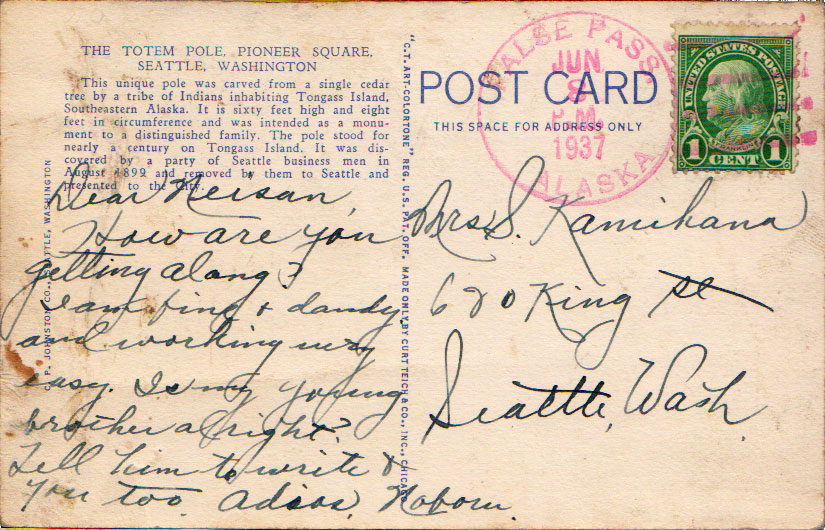 THE TOTEM POLE, PIONEER SQUARE,
SEATTLE, WASHINGTON
This unique pole was carved from a single cedar
tree by a tribe of Indians inhabiting Tongass Island,
Southeastern Alaska. It is sixty feet high and eight
feet in circumference and was intended as a monu-
ment to a distinguished family. The pole stood for
nearly a century on Tongass Island. It was dis-
covered by a party of Seattle business men in
August 1899 and removed by them to Seattle and
presented to the city.
Dear Neisan,
How are you
getting along?
I am fine & dandy
and working very
easy. Is my young
brother alright?
Tell him to write &
you too. Adios,
C. P. JOHNSTON CO., SEATTLE, WASHINGTON
"C.T. ART-COLORTONE" REG. U.S. PAT. OFF. MADE ONLY BY CURT TEICH & CO., INC., CHICAGO
POST CARD
THIS SPACE FOR ADDRESS ONLY
FALSE PASS
JUN
8
P.M.
1937
ALASKA
UNITED STATES POSTAGE
FRANKLIN
1 CENT 1
Mrs. S. Kamihana
620 King St
Seattle, Wash.